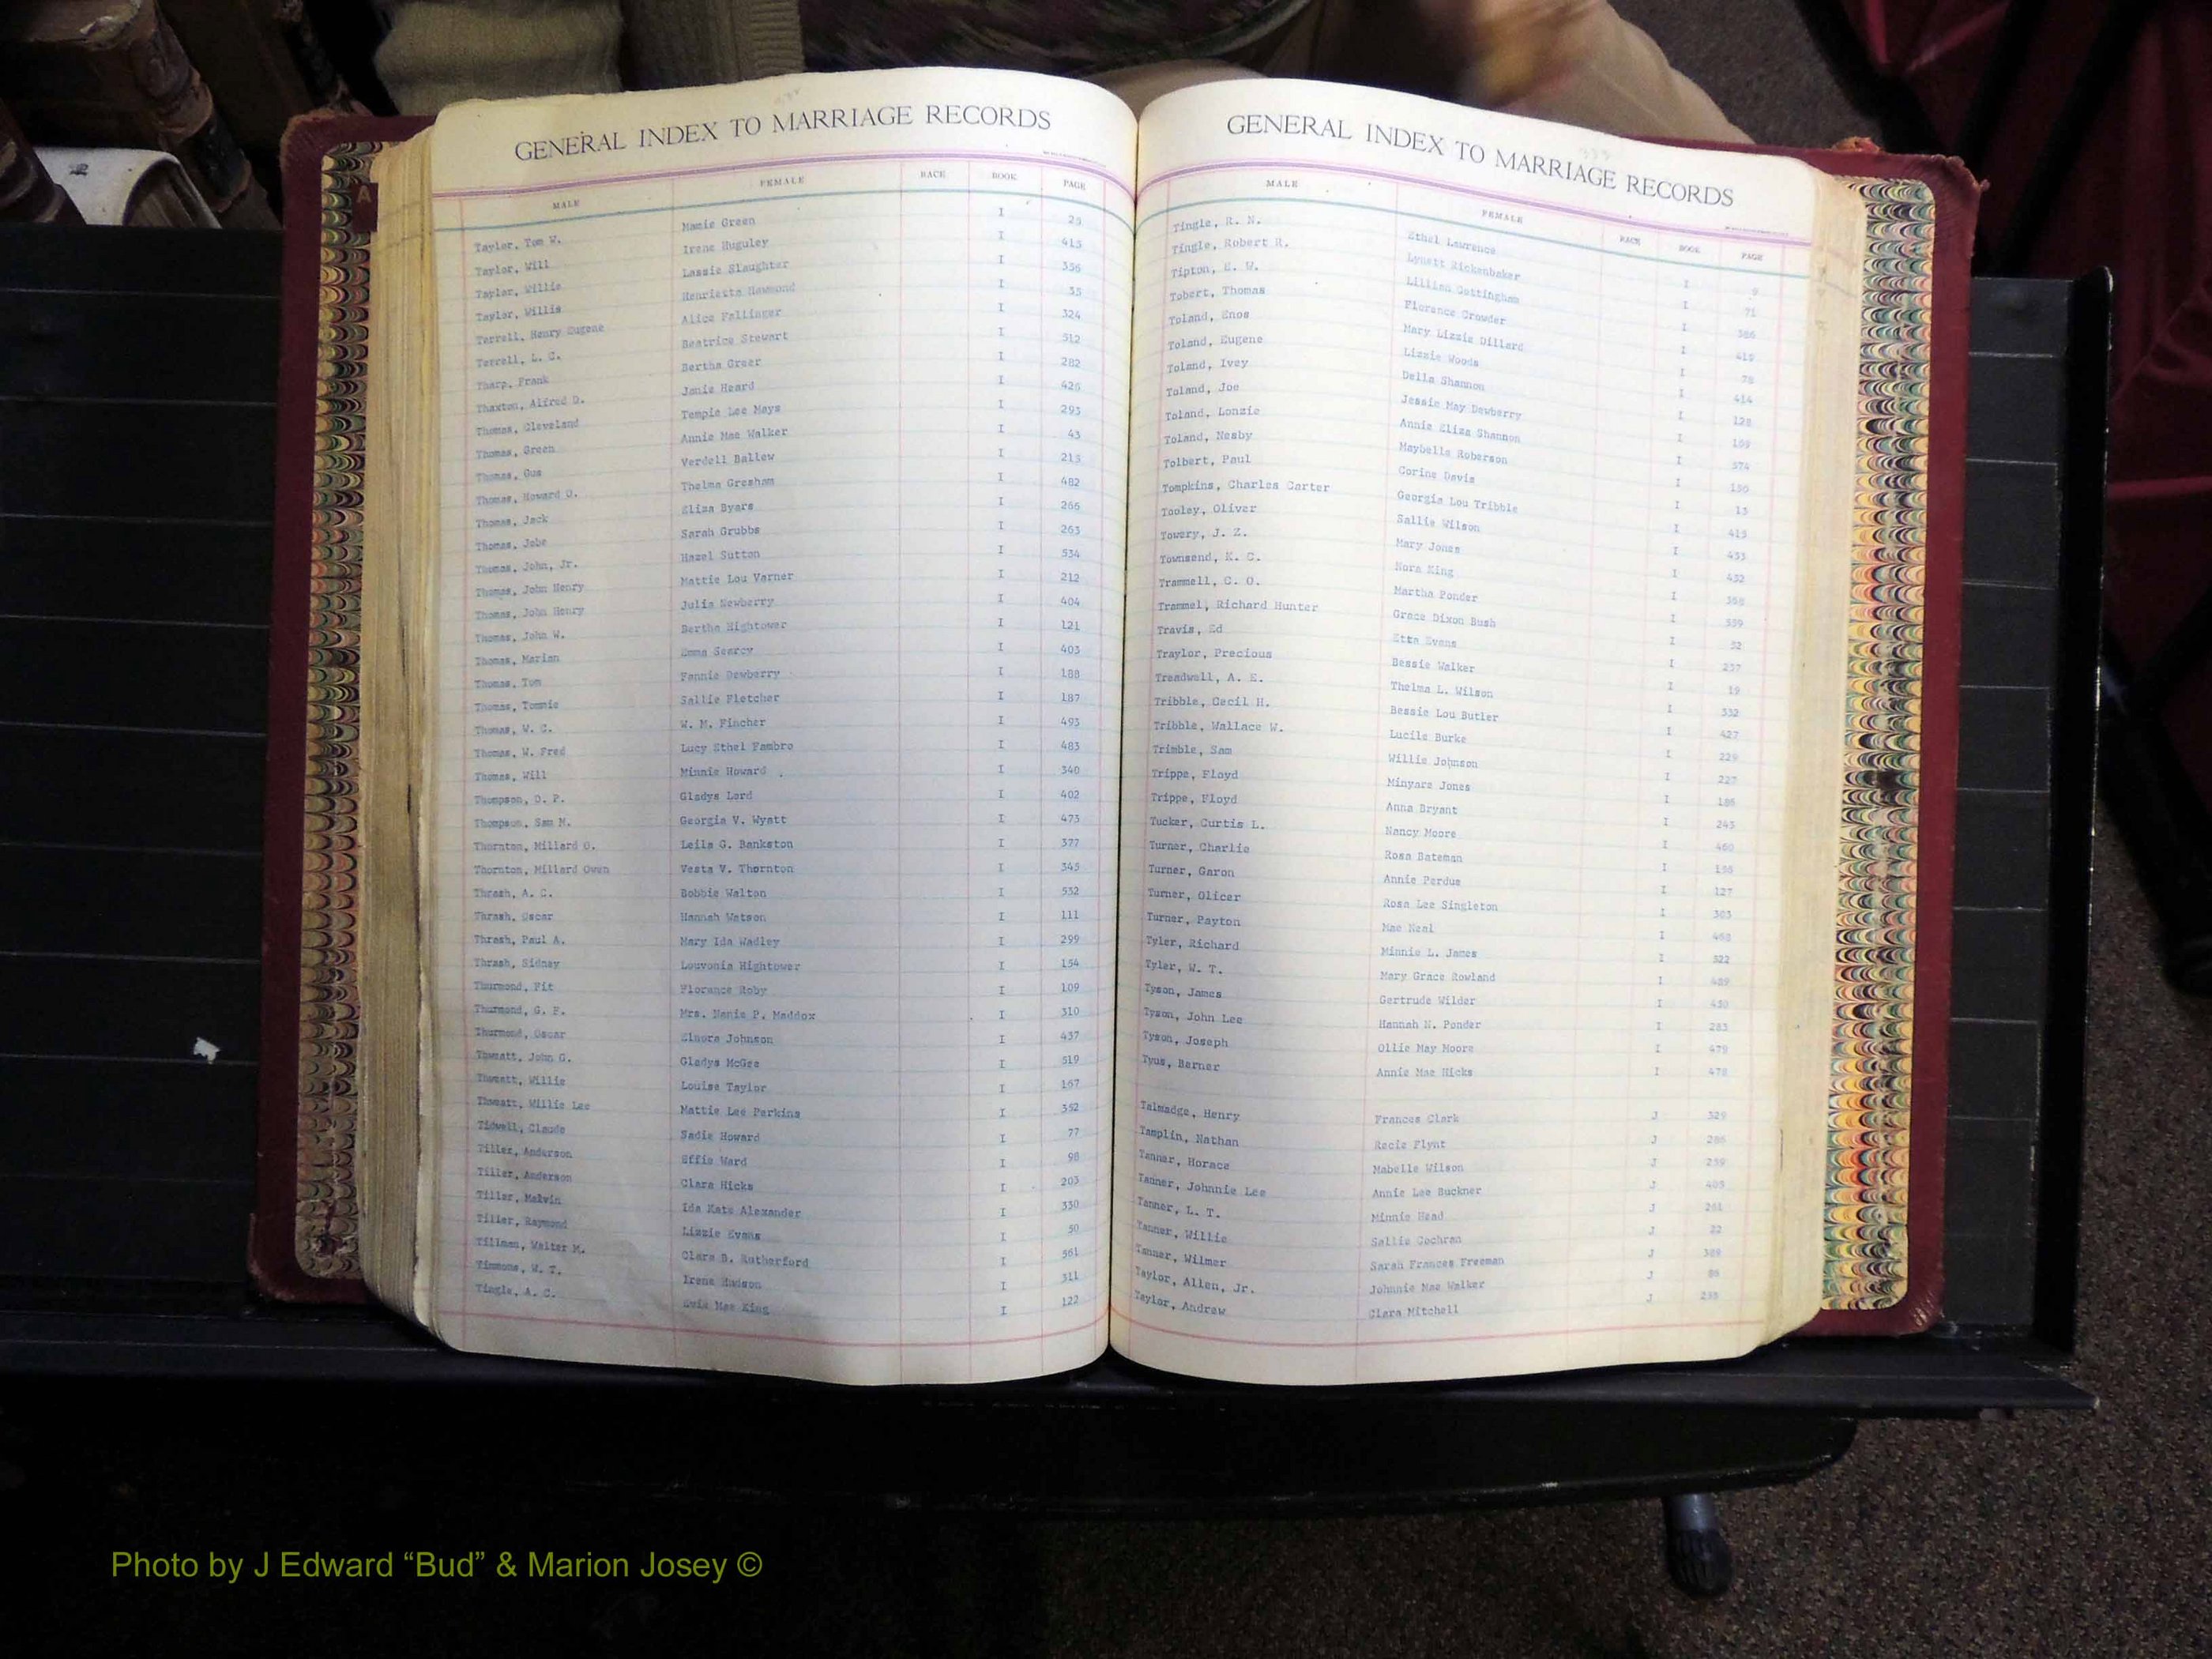 GENERAL INDEX TO MARRIAGE RECORDS
MALE FEMALE RACE BOOK PAGE
Taylor, Tom W. Mamie Green I 29
Taylor, Will Irene Huguley I 415
Taylor, Willie Lassie Slaughter I 336
Taylor, Willie Henrietta Hammond I 35
Terrell, Henry Eugene Alice Fallinger I 324
Terrell, L. C. Beatrice Stewart I 512
Tharp, Frank Bertha Greer I 282
Thaxton, Alfred D. Janie Heard I 426
Thomas, Cleveland Tempie Lee Mays I 293
Thomas, Green Annie Mae Walker I 43
Thomas, Gus Verdell Ballew I 215
Thomas, Howard O. Thelma Gresham I 482
Thomas, Jack Eliza Byars I 266
Thomas, Jobe Sarah Grubbs I 263
Thomas, John, Jr. Hazel Sutton I 534
Thomas, John Henry Mattie Lou Varner I 212
Thomas, John Henry Julia Newberry I 404
Thomas, John W. Bertha Hightower I 121
Thomas, Marian Emma Searcy I 403
Thomas, Tom Fannie Dewberry I 188
Thomas, Tommie Sallie Fletcher I 187
Thomas, W. C. W. M. Fincher I 493
Thomas, W. Fred Lucy Ethel Fambro I 483
Thomas, Will Minnie Howard I 340
Thompson, O. P. Gladys Lord I 402
Thompson, Sam M. Georgia V. Wyatt I 473
Thornton, Millard O. Leila G. Bankston I 377
Thornton, Millard Owen Vesta V. Thornton I 345
Thrash, A. C. Bobbie Walton I 532
Thrash, Oscar Hannah Watson I 111
Thrash, Paul A. Mary Ida Wadley I 299
Thrash, Sidney Louvonia Hightower I 154
Thurmond, Fit Florance Roby I 109
Thurmond, G. F. Mrs. Nanie P. Maddox I 310
Thurmond, Oscar Elnora Johnson I 437
Thweatt, John G. Gladys McGee I 519
Thweatt, Willie Louise Taylor I 167
Thweatt, Willie Lee Mattie Lee Perkins I 352
Tidwell, Claude Sadie Howard I 77
Tiller, Anderson Effie Ward I 98
Tiller, Anderson Clara Hicks I 203
Tiller, Melvin Ida Kate Alexander I 330
Tiller, Raymond Lizzie Evans I 50
Tillman, Walter M. Clara B. Rutherford I 561
Timmons, W. T. Irene Hudson I 311
Tingle, A. C. Mae King I 122
GENERAL INDEX TO MARRIAGE RECORDS
MALE FEMALE RACE BOOK PAGE
Tingle, R. N. Ethel Lawrence I 9
Tingle, Robert R. Lynett Rickenbaker I 71
Tipton, E. W. Lillian Cottingham I 386
Tobert, Thomas Florence Crowder I 419
Toland, Enos Mary Lizzie Dillard I 78
Toland, Eugene Lizzie Woods I 414
Toland, Ivey Della Shannon I 128
Toland, Joe Jessie May Dewberry I 169
Toland, Lonzie Annie Eliza Shannon I 374
Toland, Nesby Maybelle Roberson I 136
Tolbert, Paul Corine Davis I 13
Tompkins, Charles Carter Georgia Lou Tribble I 415
Tooley, Oliver Sallie Wilson I 433
Towery, J. Z. Mary Jones I 432
Townsend, K. C. Nora King I 368
Trammell, C. O. Martha Ponder I 339
Trammel, Richard Hunter Grace Dixon Bush I 32
Travis, Ed Etta Evans I 237
Traylor, Precious Bessie Walker I 19
Treadwell, A. E. Thelma L. Wilson I 332
Tribble, Cecil H. Bessie Lou Butler I 427
Tribble, Wallace W. Lucile Burke I 229
Trimble, Sam Willie Johnson I 227
Trippe, Floyd Minyare Jones I 186
Trippe, Floyd Anna Bryant I 245
Tucker, Curtis L. Nancy Moore I 460
Turner, Charlie Rosa Bateman I 196
Turner, Garon Annie Perdue I 127
Turner, Olicer Rosa Lee Singleton I 303
Turner, Payton Mae Neal I 468
Tyler, Richard Minnie L. James I 522
Tyler, W. T. Mary Grace Rowland I 489
Tyson, James Gertrude Wilder I 430
Tyson, John Lee Hannah N. Ponder I 283
Tyson, Joseph Ollie May Moore I 479
Tyus, Berner Annie Mae Hicks I 478
Talmadge, Henry Frances Clark J 329
Tamplin, Nathan Recie Flynt J 286
Tanner, Horace Mabelle Wilson J 259
Tanner, Johnnie Lee Annie Lee Buckner J 405
Tanner, L. T. Minnie Head J 261
Tanner, Willie Sallie Cochran J 22
Tanner, Wilmer Sarah Frances Freeman J 389
Taylor, Allen, Jr. Johnnie Mae Walker J 86
Taylor, Andrew Clara Mitchell J 255
A
Photo by J Edward “Bud” & Marion Josey ©